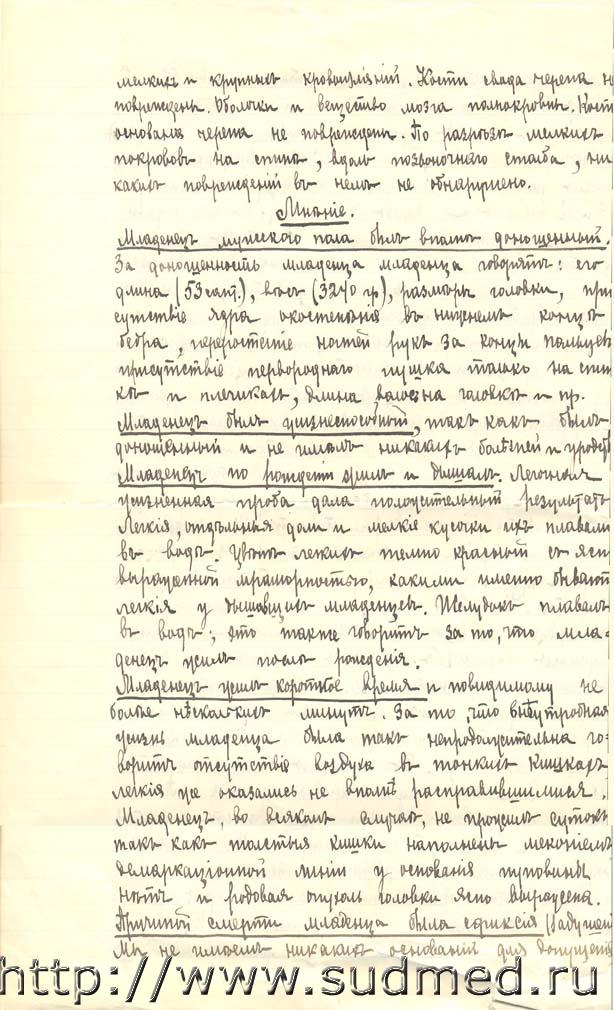 мелкихъ и крупныхъ кровоизліяній. Кости свода черепа не
повреждены. Оболочки и вещество мозга полнокровны. Кости
основанія черепа не повреждены. По разрѣзѣ мягкихъ
покрововъ на спинѣ, вдоль позвоночнаго столба, ни
какихъ поврежденій въ немъ не обнаружено.
Мнѣніе.
Младенецъ мужскаго пола былъ вполнѣ доношенный.
За доношенность младенца младенца говорятъ: его
длина (53 сант.), вѣсъ (3240 гр), размѣры головки, при
сутствіе ядра окостенѣнія въ нижнемъ концѣ
бедра, переростаніе ногтей рукъ за концы пальцевъ
присутствіе первороднаго пушка только на спин
кѣ и плечикахъ, длина волосъ на головкѣ и пр.
Младенецъ былъ жизнеспособный, такъ какъ былъ
доношенный и не имѣлъ никакихъ болѣзней и уродст
Младенецъ по рожденіи жилъ и дышалъ. Легочная
жизненная проба дала положительный результатъ
Легкія, отдѣльныя доли и мелкіе кусочки ихъ плавали
въ водѣ. Цвѣтъ легкихъ темно красный съ ясн
выраженной мраморностью, какими именно бываютъ
легкія у дышавшихъ младенцевъ. Желудокъ плавалъ
въ водѣ; это также говоритъ за то, что мла-
денецъ жилъ послѣ рожденія.
Младенецъ жилъ короткое время и повидимому не
болѣе нѣсколькихъ минутъ. За то, что внѣутробная
жизнь младенца была такъ непродолжительна го-
воритъ отсутствіе воздуха въ тонкихъ кишкахъ
легкія же оказались не вполнѣ расправившимися.
Младенецъ, во всякомъ случаѣ, не прожилъ сутокъ
такъ какъ толстыя кишки наполнены меконіемъ
демаркаціонной линіи у основанія пуповины
нѣтъ и родовая опухоль головки ясно выражена.
Причиной смерти младенца была асфиксія (задушен
Мы не имѣемъ никакихъ основаній для допущенія
http://www.sudmed.ru